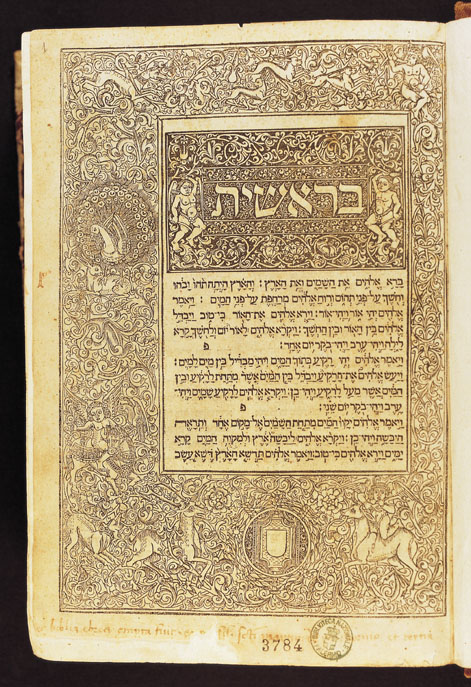 בראשית
ברא אלהים את השמים ואת הארץ : והארץ היתה תהו ובהו
וחשך על פני תהום ורוח אלהים מרחפת על פני המים : ויאמר
אלהים יהי אור ויהי אור : וירא אלהים את האור כי טוב ויבדל
אלהים בין האור ובין החשך : ויקרא אלהים לאור יום ולחשך קרא
לילה ויהי ערב ויהי בקר יום אחד : פ
ויאמר אלהים יהי רקיע בתוך המים ויהי מבדיל בין מים למים :
ויעש אלהים את הרקיע ויבדל בין המים אשר מתחת לרקיע ובין
המים אשר מעל לרקיע ויהי כן : ויקרא אלהים לרקיע שמים ויהי
ערב ויהי בקר יום שני : פ
ויאמר אלהים יקוו המים מתחת השמים אל מקום אחד ותראה
היבשה ויהי כן : ויקרא אלהים ליבשה ארץ ולמקוה המים קרא
ימים וירא אלהים כי טוב : ויאמר אלהים תדשא הארץ דשא עשב
biblia ebrea empta fuit
3784